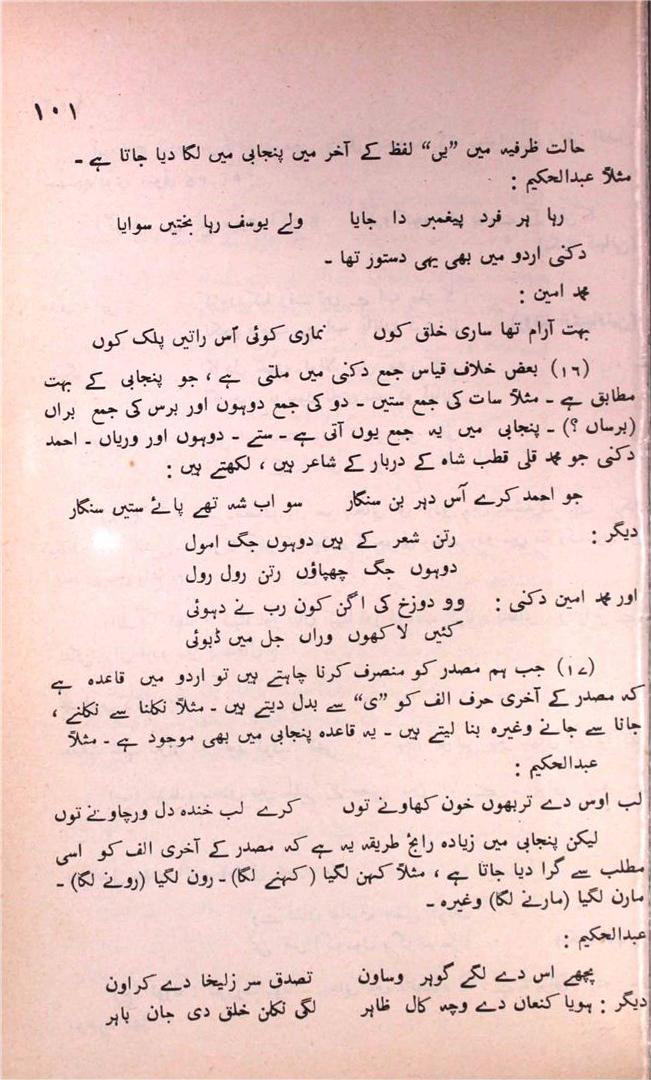 ۱۰۱
حالت ظرفیہ میں ”یں“ لفظ کے آخر میں پنجابی میں لگا دیا جاتا ہے ۔
مثلاً عبدالحکیم :
رہا ہر فرد پیغمبر دا جایا ولے یوسف رہا بختیں سوایا
دکنی اردو میں بھی یہی دستور تھا ۔
محمد امین :
بہت آرام تھا ساری خلق کوں نماری کوئی اُس راتیں پلک کوں
(۱۶) بعض خلاف قیاس جمع دکنی میں ملتی ہے ، جو پنجابی کے بہت
مطابق ہے ۔ مثلاً سات کی جمع ستیں ۔ دو کی جمع دوہوں اور برس کی جمع براں
(برساں ؟) ۔ پنجابی میں یہ جمع یوں آتی ہے ۔ ستے ۔ دوہوں اور وریاں ۔ احمد
دکنی جو محمد قلی قطب شاہ کے دربار کے شاعر ہیں ، لکھتے ہیں :
جو احمد کرے اُس دہر بن سنگار سو اب شہ تھے پائے ستیں سنگار
دیگر : رتن شعر کے ہیں دوہوں جگ امول
دوہوں جگ چھپاؤں رتن رول رول
اور محمد امین دکنی : وو دوزخ کی اگن کون رب نے دہوئی
کئیں لاکھوں وراں جل میں ڈبوئی
(۱۷) جب ہم مصدر کو منصرف کرنا چاہتے ہیں تو اردو میں قاعدہ ہے
کہ مصدر کے آخری حرف الف کو ”ی“ سے بدل دیتے ہیں ۔ مثلاً نکلنا سے نکلنے ،
جانا سے جانے وغیرہ بنا لیتے ہیں ۔ یہ قاعدہ پنجابی میں بھی موجود ہے ۔ مثلاً
عبدالحکیم :
لب اوس دے تربھوں خون کھاونے توں کرے لب خندہ دل ورچاونے توں
لیکن پنجابی میں زیادہ رائج طریقہ یہ ہے کہ مصدر کے آخری الف کو اسی
مطلب سے گرا دیا جاتا ہے ، مثلاً کہن لگیا (کہنے لگا) ۔ رون لگیا (رونے لگا) ۔
مارن لگیا (مارنے لگا) وغیرہ ۔
عبدالحکیم :
پچھے اس دے لگے گوہر وساون تصدق سر زلیخا دے کراون
دیگر : ہویا کنعاں دے وچہ کال ظاہر لگی نکلن خلق دی جان باہر